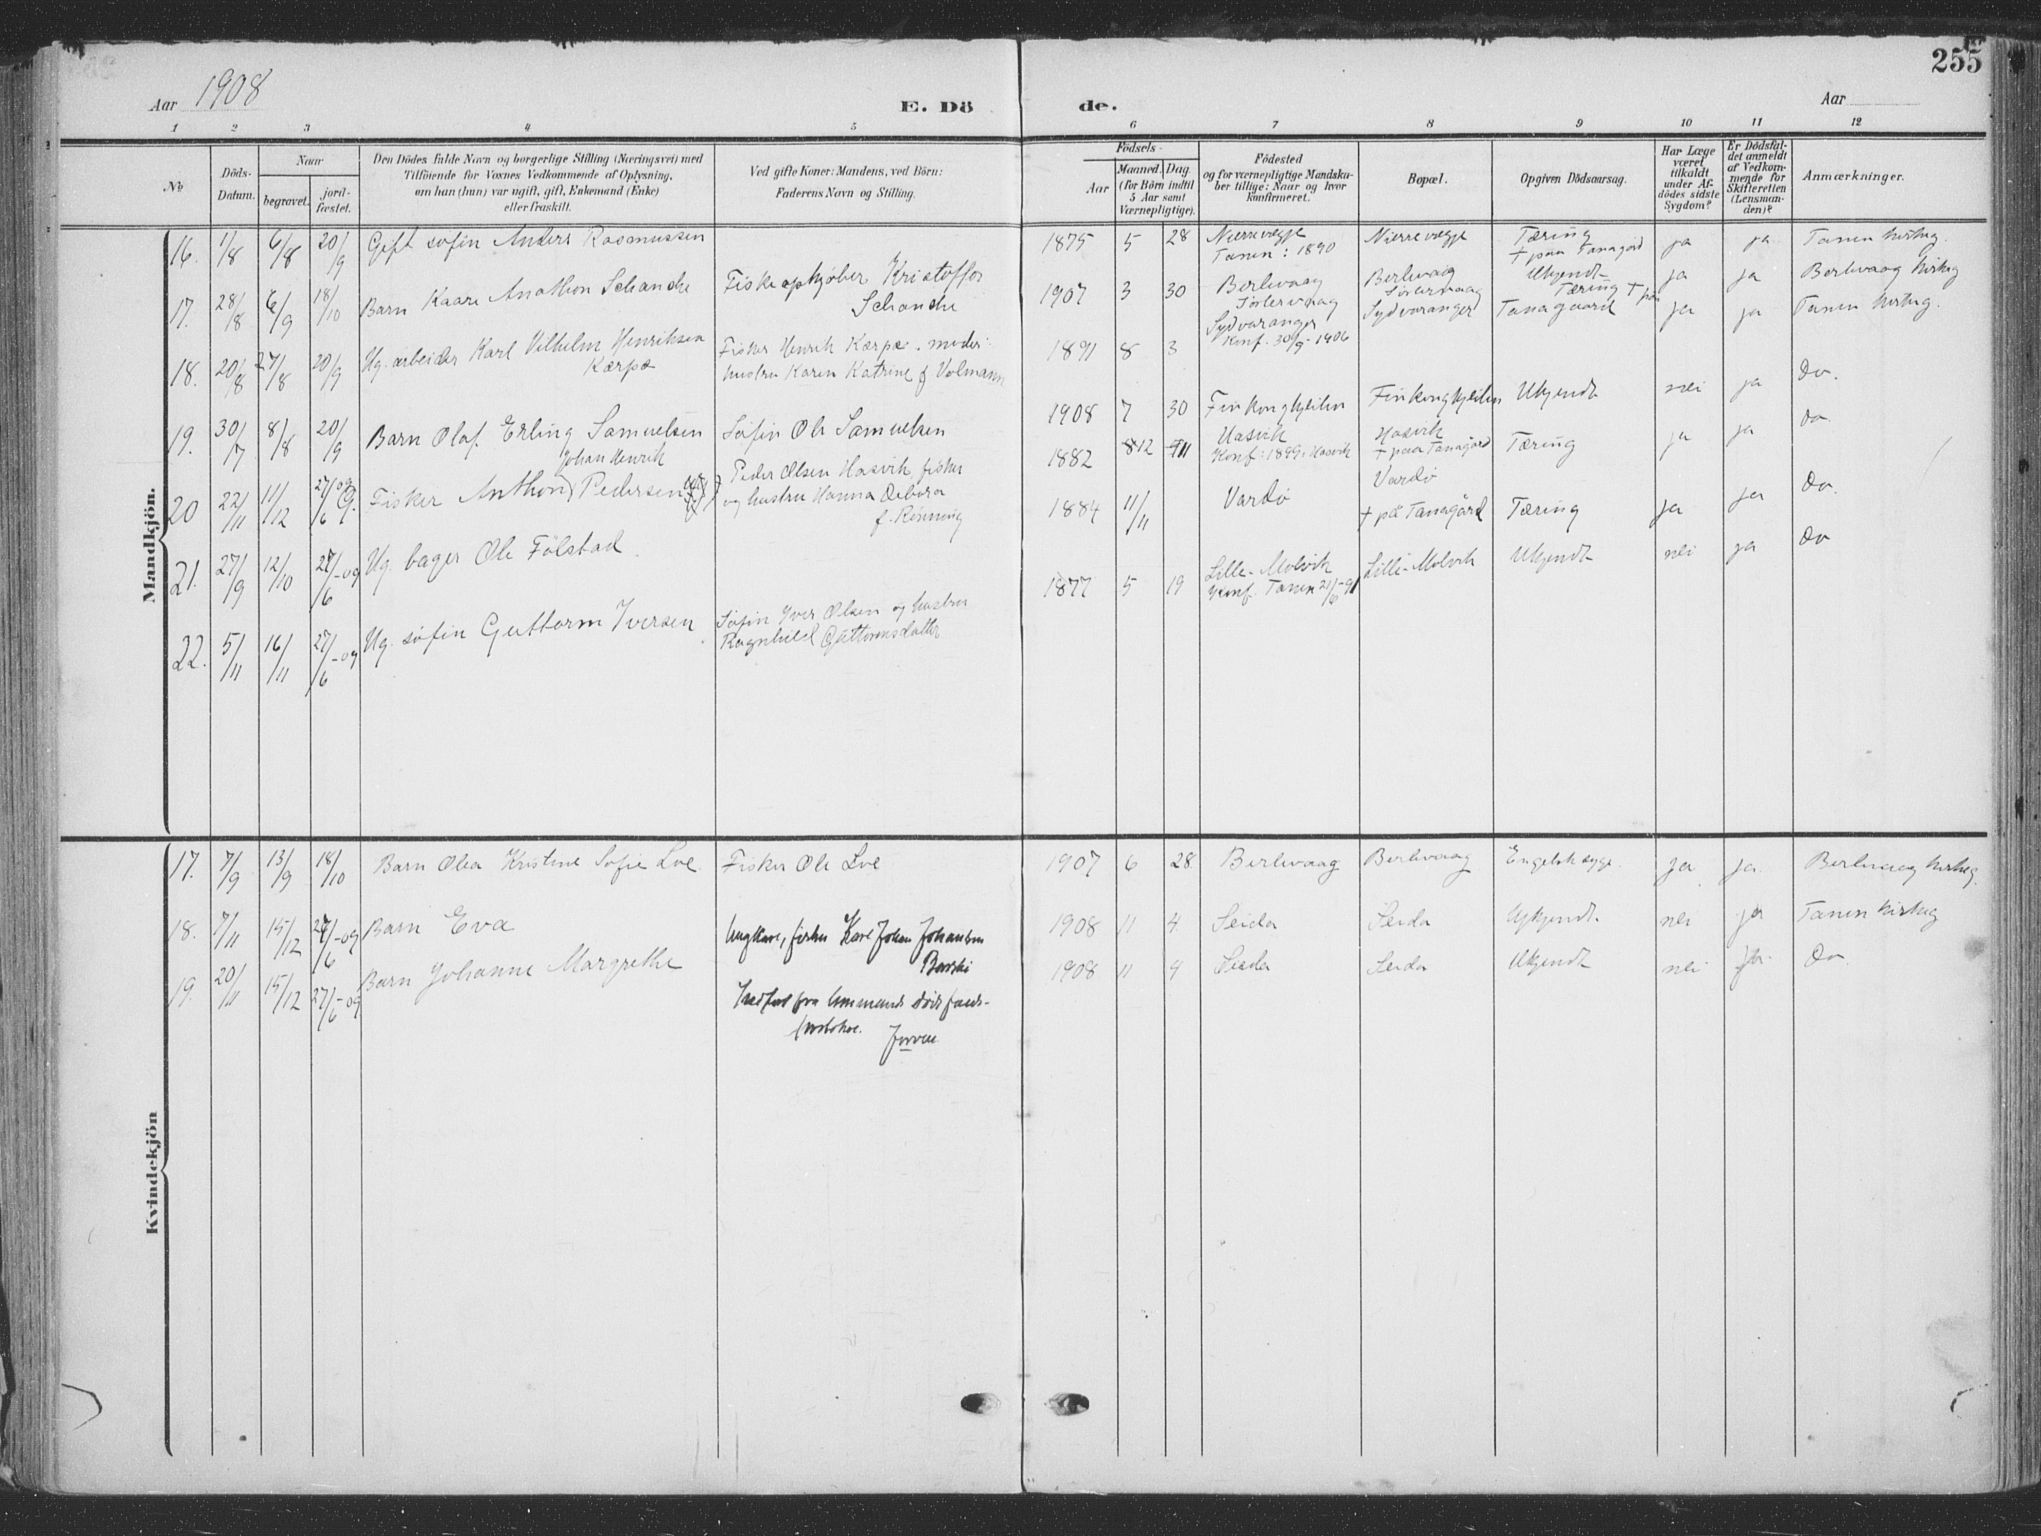 255
Aar 1908
E. Dö de.
Aar
1 2 3 4 5 6 7 8 9 10 11 12
No
Döds-
Datum.
Naar
begravet.
jord-
fæstet.
Den Dödes fulde Navn og borgerlige Stilling (Næringsvei) med
Tilföiende for Voxnes Vedkommende af Oplysning,
om han (hun) var ugift, gift, Enkemand (Enke)
eller fraskilt.
Ved gifte Koner: Mandens, ved Börn:
Faderens Navn og Stilling.
Födsels-
Aar
Maaned. Dag
(for Börn indtil
5 Aar samt
Værnepligtige).
Födested
og for værnepligtige Mandska-
ber tillige: Naar og hvor
konfirmeret.
Bopæl.
Opgiven Dödsaarsag.
Har Læge
været
tilkaldt
under Af-
dödes sidste
Sygdom?
Er Dödsfal-
det anmeldt
af Vedkom-
mende for
Skifteretten
(Lensman-
den)?
Anmærkninger.
Mandkjön.
16. 1/8 6/8 20/9 Gift søfin Anders Rasmussen 1875 5 28 Nierrevægje Nierrevægje Tæring ja ja Tanen kirkeg.
Tanen: 1890 + paa Tanagård
17. 28/8 6/9 18/10 Barn Kaare Anathon Schanche Fiskeopkjøber Kristoffer 1907 3 30 Berlevaag Berlevaag Ukjendt ja ja Berlevaag kirkeg
Schanche
18. 20/8 27/8 20/9 Ug. arbeider Karl Vilhelm Henriksen Fisker Henrik Karpæ. moder: 1891 8 3 Sydvaranger Sydvaranger Tæring + paa Tanagaard ja ja Tanen kirkeg.
Kærpæ hustru Karen Katrine f Volmann Konf. 30/9-1906
19. 30/7 8/8 20/9 Barn Olaf Erling Samuelsen Søfin Ole Samuelsen 1908 7 30 Finkongkjeilen Finkongkjeilen Ukjendt nei ja Do.
Johan Henrik
20 22/11 11/12 27/6 09 Fisker Anthon Pedersen Peder Olsen Hasvik, fisker 1882 12 11 Hasvik Hasvik Tæring ja ja Do.
og hustru Hanna Debora Konf: 1899, Hasvik + paa Tanagård
f. Rønning
21. 27/9 12/10 27/6-09 Ug. bager Ole Følstad 1884 11/11 Vardø Vardø Tæring ja ja Do.
+ på Tanagård
22. 5/11 16/11 27/6-09 Ug. søfin Guttorm Iversen Søfin Iver Olsen og hustru 1877 5 19 Lille-Molvik Lille-Molvik Ukjendt nei ja Do
Ragnhild Guttormsdatter Konf. Tanen 21/6-91
Kvindekjön
17. 7/9 13/9 18/10 Barn Olea Kristine Sofie Loe Fisker Ole Loe 1907 6 28 Berlevaag Berlevaag Engelsk syge. ja ja Berlevaag kirkeg.
18. 7/11 15/12 27/6-09 Barn Eva Ungkare, fisker Karl Johan Johansen 1908 11 4 Seida Seida Ukjendt. nei ja Tanen kirkeg
19. 20/11 15/12 27/6-09 Barn Johanne Margrethe 1908 11 4 Seida Seida Ukjendt nei ja Do.